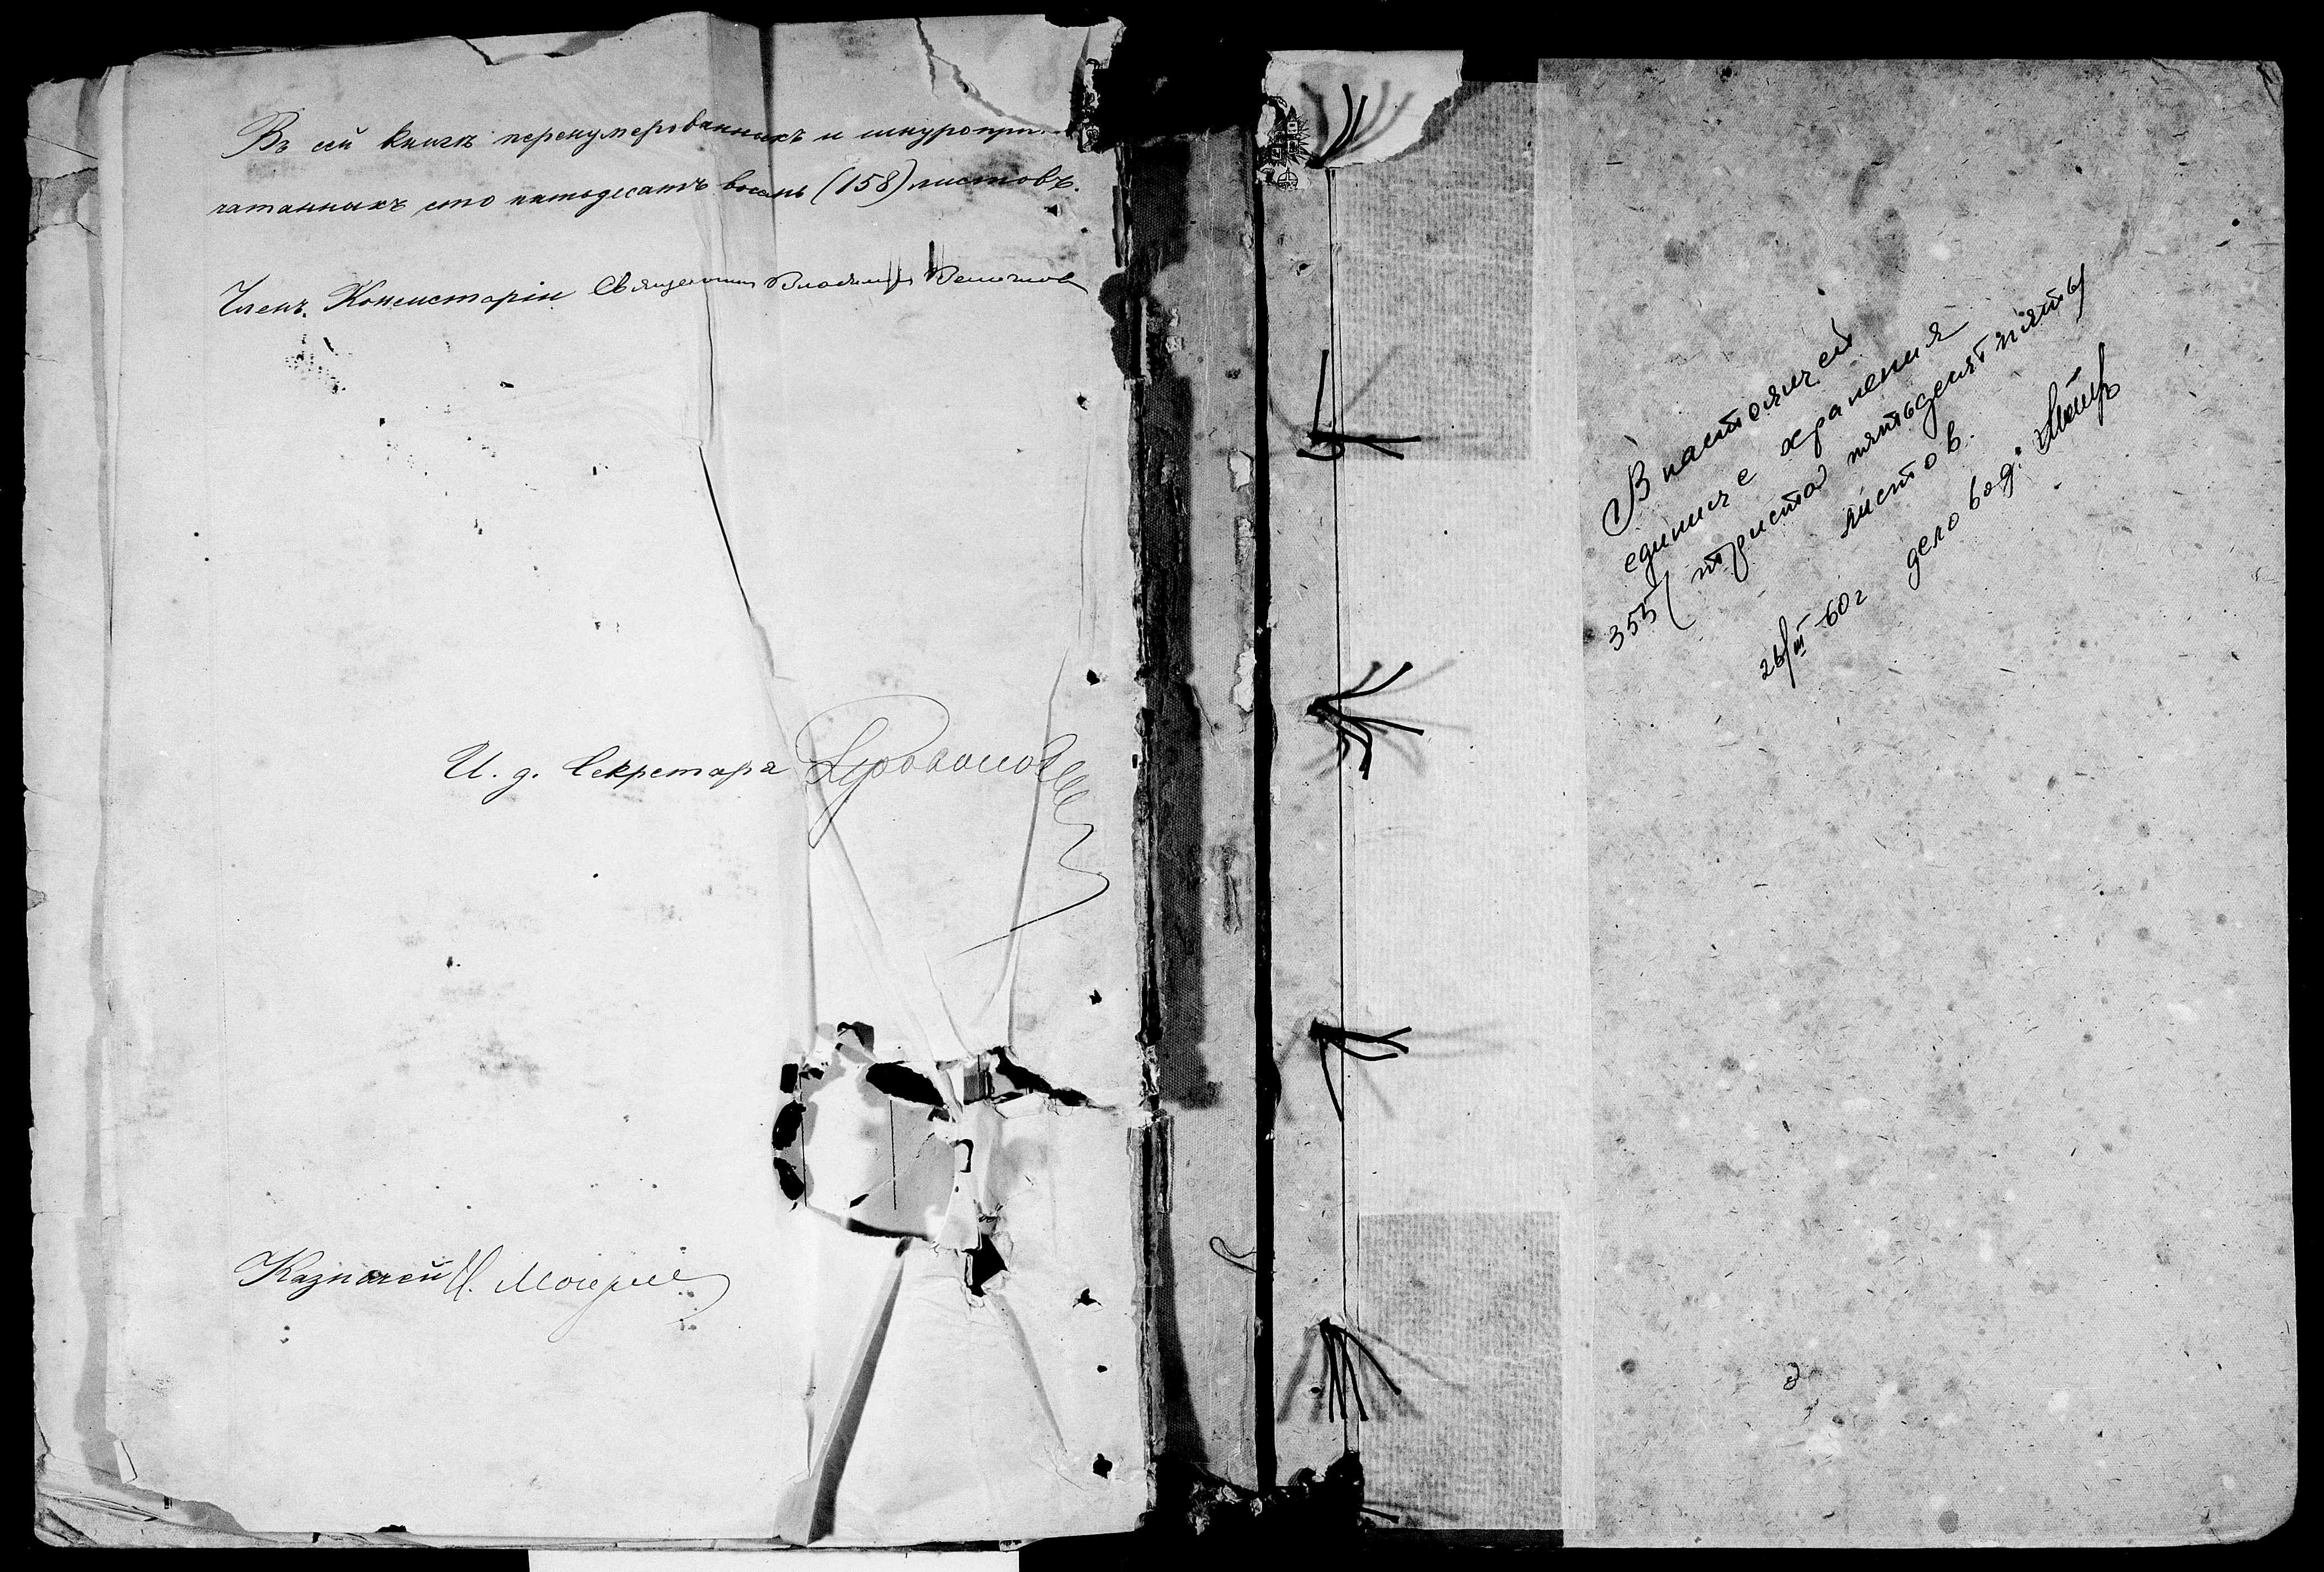 Въ сей книгѣ перенумерованныхъ и шнуропри-
чатанныхъ сто пятьдесятъ восемь (158) листовъ.
Членъ Консисторіи Священникъ Владиміръ
И. д. Секретаря
Казначей
В настоящей
единице хранения
355 (триста пятьдесят пять)
листов.
26/III-60г делопроизв: